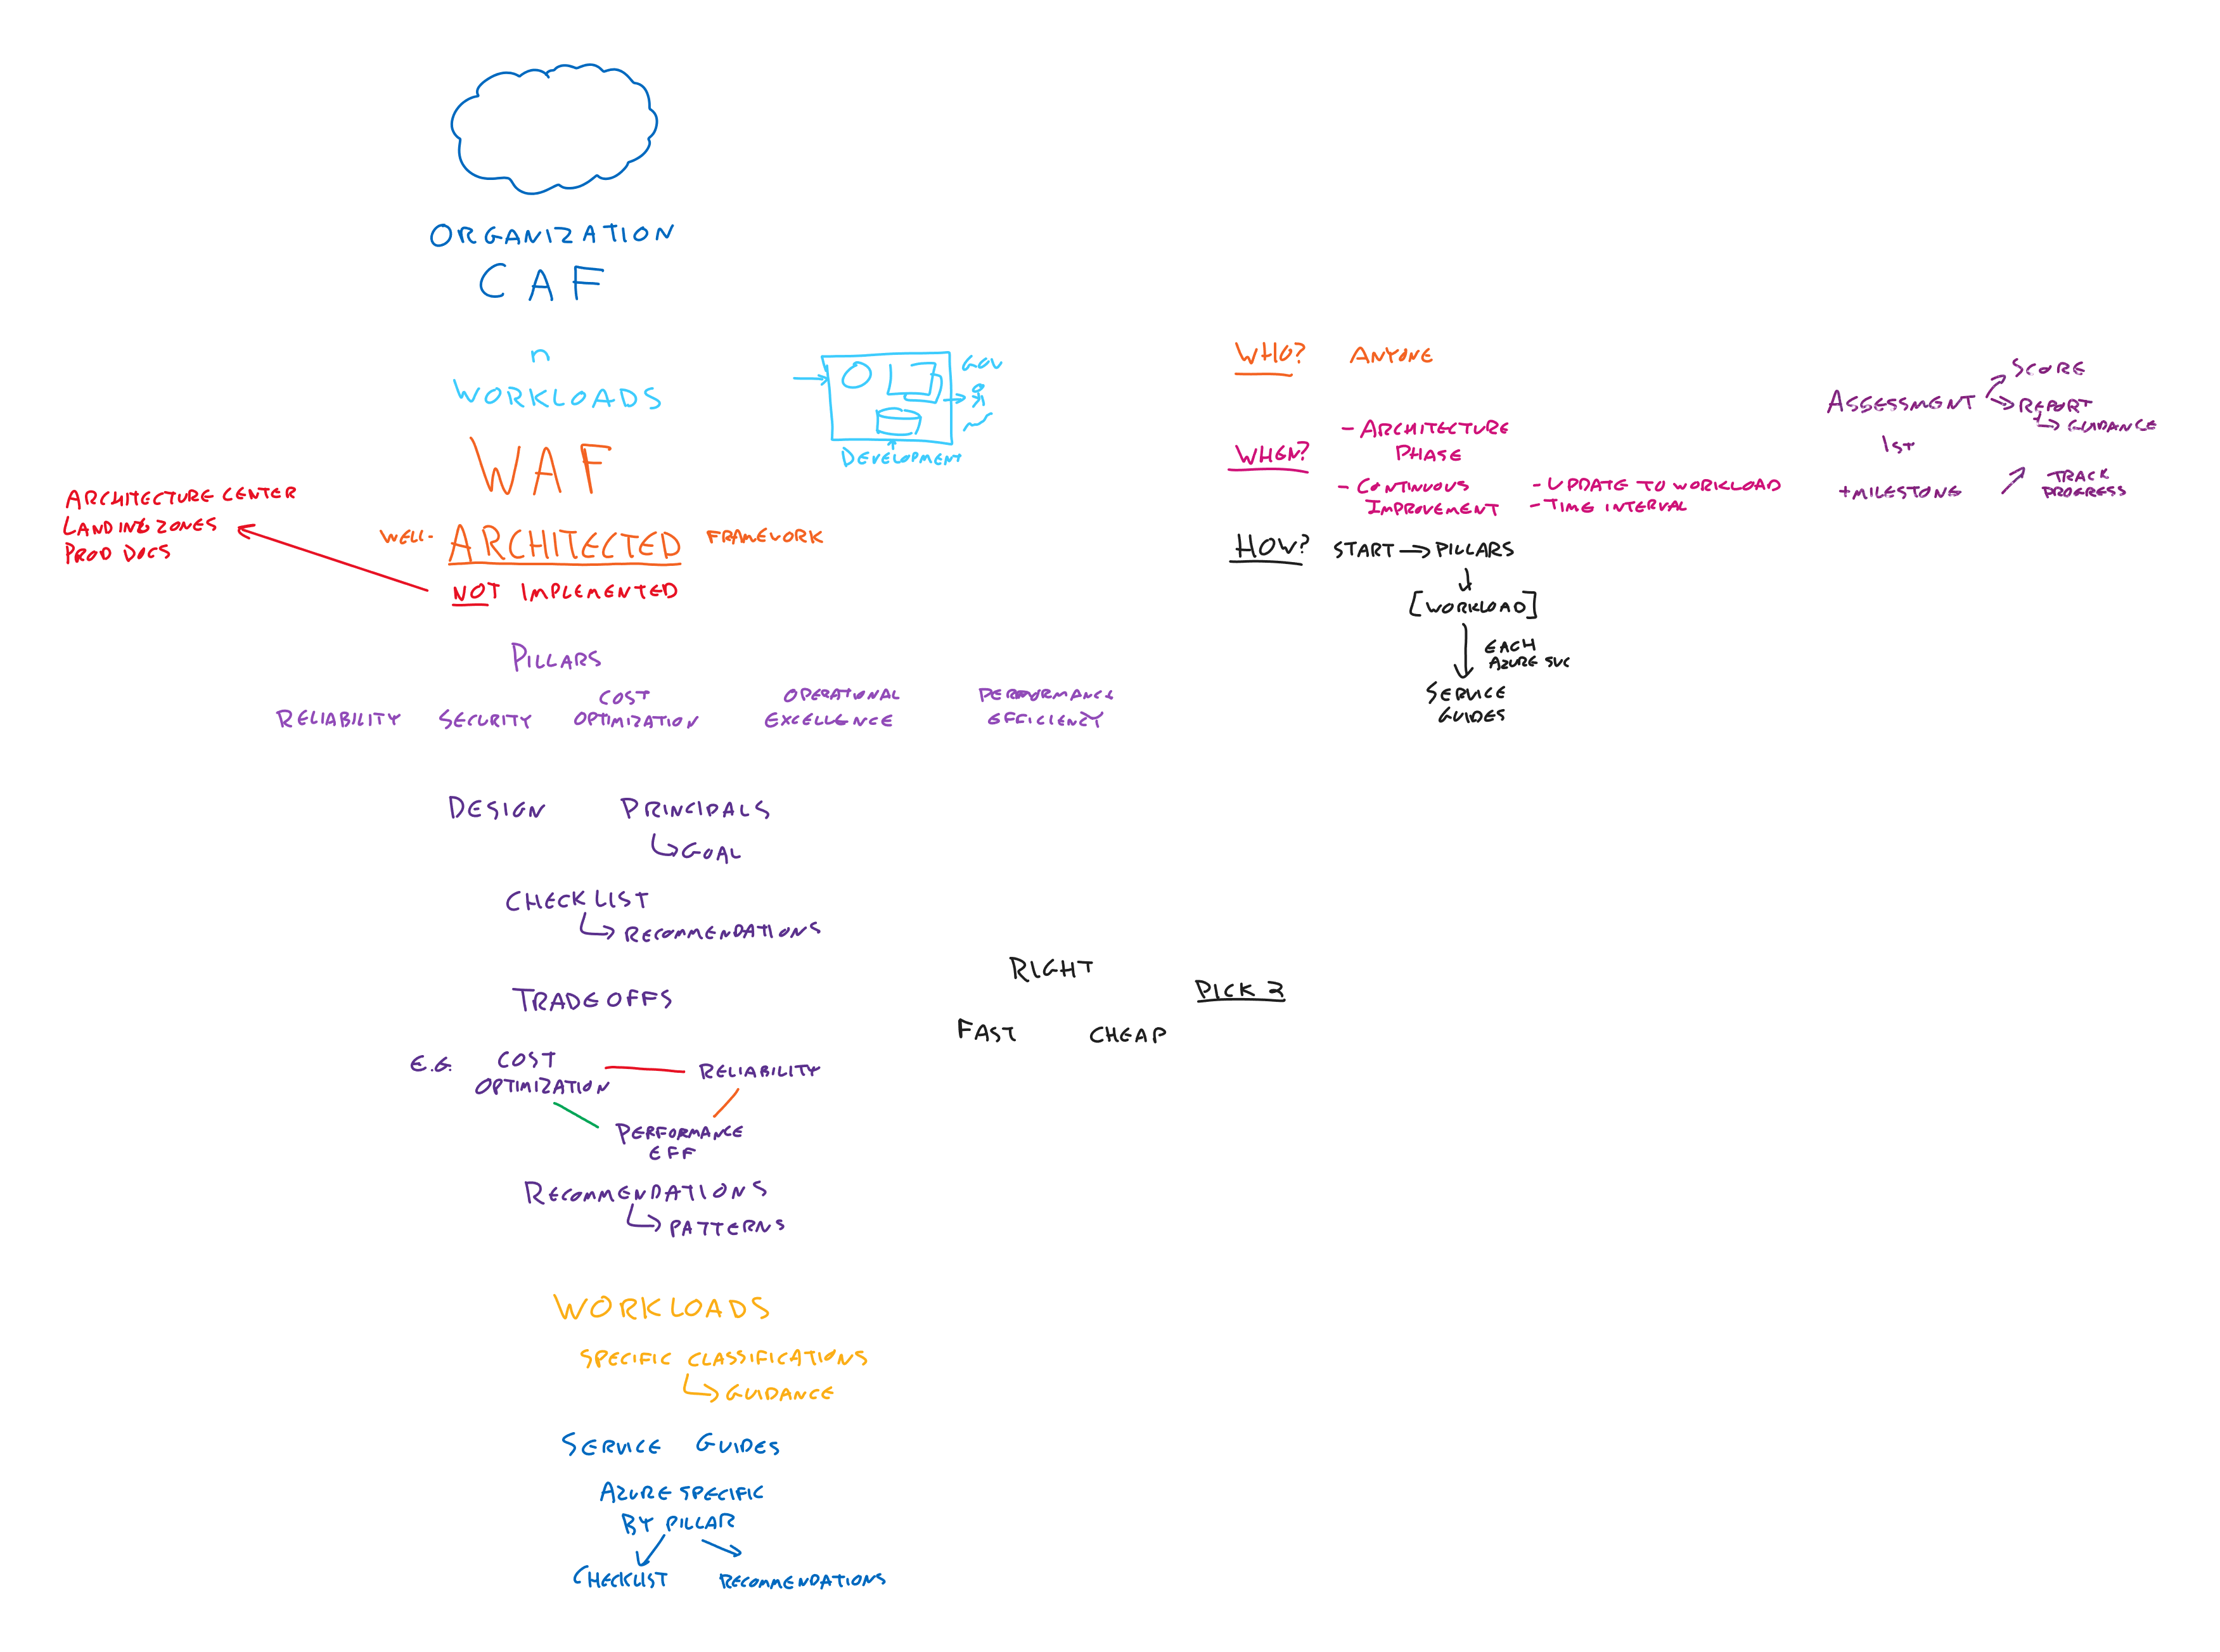 ORGANIZATION
CAF
n
WORKLOADS
GOV
DEVELOPMENT
WAF
WELL- ARCHITECTED FRAMEWORK
NOT IMPLEMENTED
ARCHITECTURE CENTER
LANDING ZONES
PROD DOCS
PILLARS
RELIABILITY
SECURITY
COST
OPTIMIZATION
OPERATIONAL
EXCELLENCE
PERFORMANCE
EFFICIENCY
DESIGN PRINCIPALS
GOAL
CHECKLIST
RECOMMENDATIONS
TRADEOFFS
E.G. COST
OPTIMIZATION
RELIABILITY
PERFORMANCE
EFF
RECOMMENDATIONS
PATTERNS
WORKLOADS
SPECIFIC CLASSIFICATIONS
GUIDANCE
SERVICE GUIDES
AZURE SPECIFIC
BY PILLAR
CHECKLIST RECOMMENDATIONS
RIGHT
FAST CHEAP
PICK 2
WHO? ANYONE
WHEN?
- ARCHITECTURE
PHASE
- CONTINUOUS
IMPROVEMENT
- UPDATE TO WORKLOAD
- TIME INTERVAL
HOW? START → PILLARS
[WORKLOAD]
EACH
AZURE SVC
SERVICE
GUIDES
ASSESSMENT
SCORE
REPORT
GUIDANCE
1st
+MILESTONE
TRACK
PROGRESS